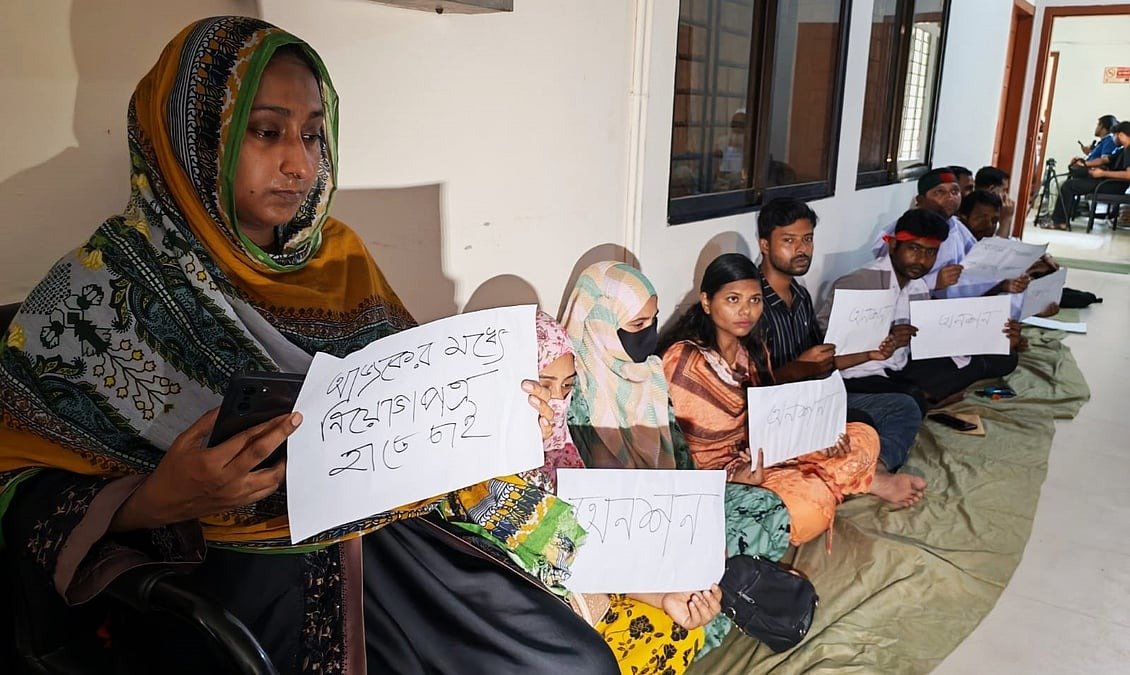 আজকের মধ্যে
নিয়োগপত্র
হাতে চাই
অনশন
অনশন
অনশন
অনশন